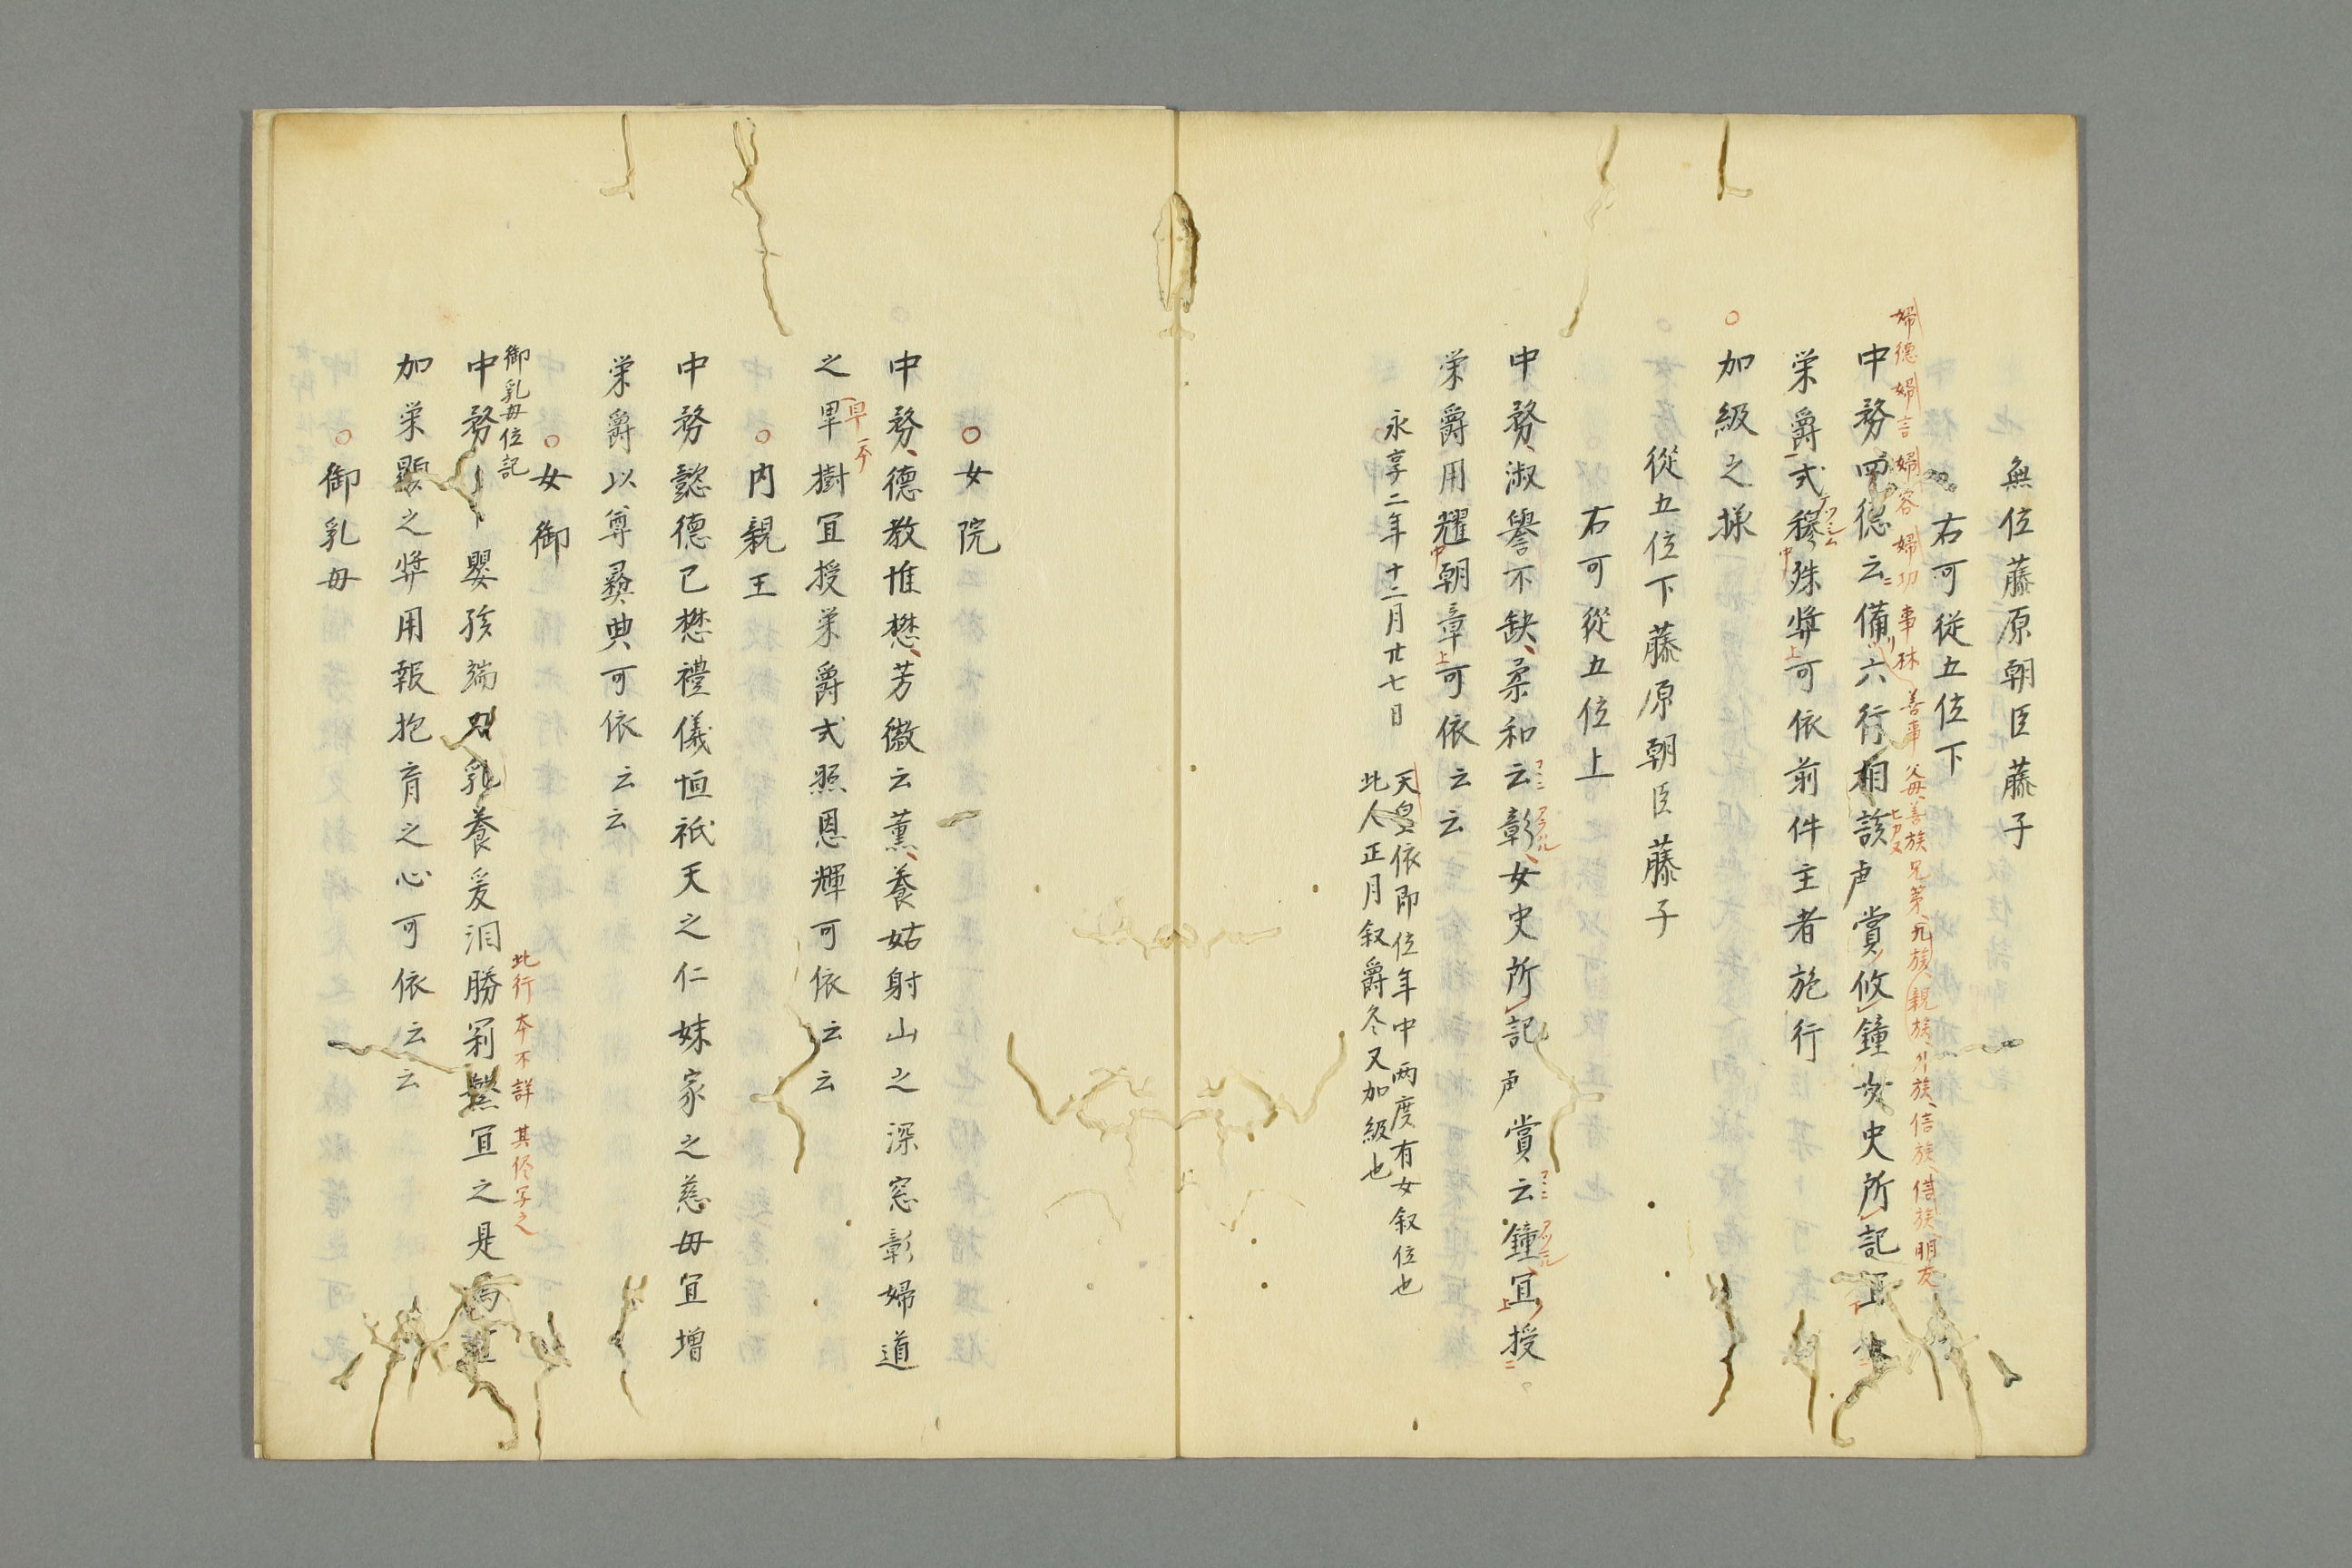 無位藤原朝臣藤子
右可従五位下
婦德 婦言 婦容 婦功 事林 善事 父母 善族兄弟 九族 親族 外族 信族 借族 朋友
中務四德云備六行相該声賞攸鐘女史所記宜
栄爵式穆殊奨可依前件主者施行
加級之様
従五位下藤原朝臣藤子
右可従五位上
中務淑譽不缺柔和云彰女史所記声賞云鐘宜授
栄爵用耀朝章可依云云
永享二年十二月廿七日
天皇依即位年中两度有女叙位也
此人正月叙爵冬又加級也
女院
中務德教惟懋芳徽云薫養姑射山之深窓彰婦道
之早樹宜授栄爵式照恩輝可依云云
内親王
中務懿德已懋禮儀恒祇天之仁妹家之慈母宜増
栄爵以尊彝典可依云云
女御
御乳母位記
此行本不詳 其侭写之
中務 嬰孩端 乳養爰泪勝 宜之是
加栄顕之奨用報抱育之心可依云云
御乳母